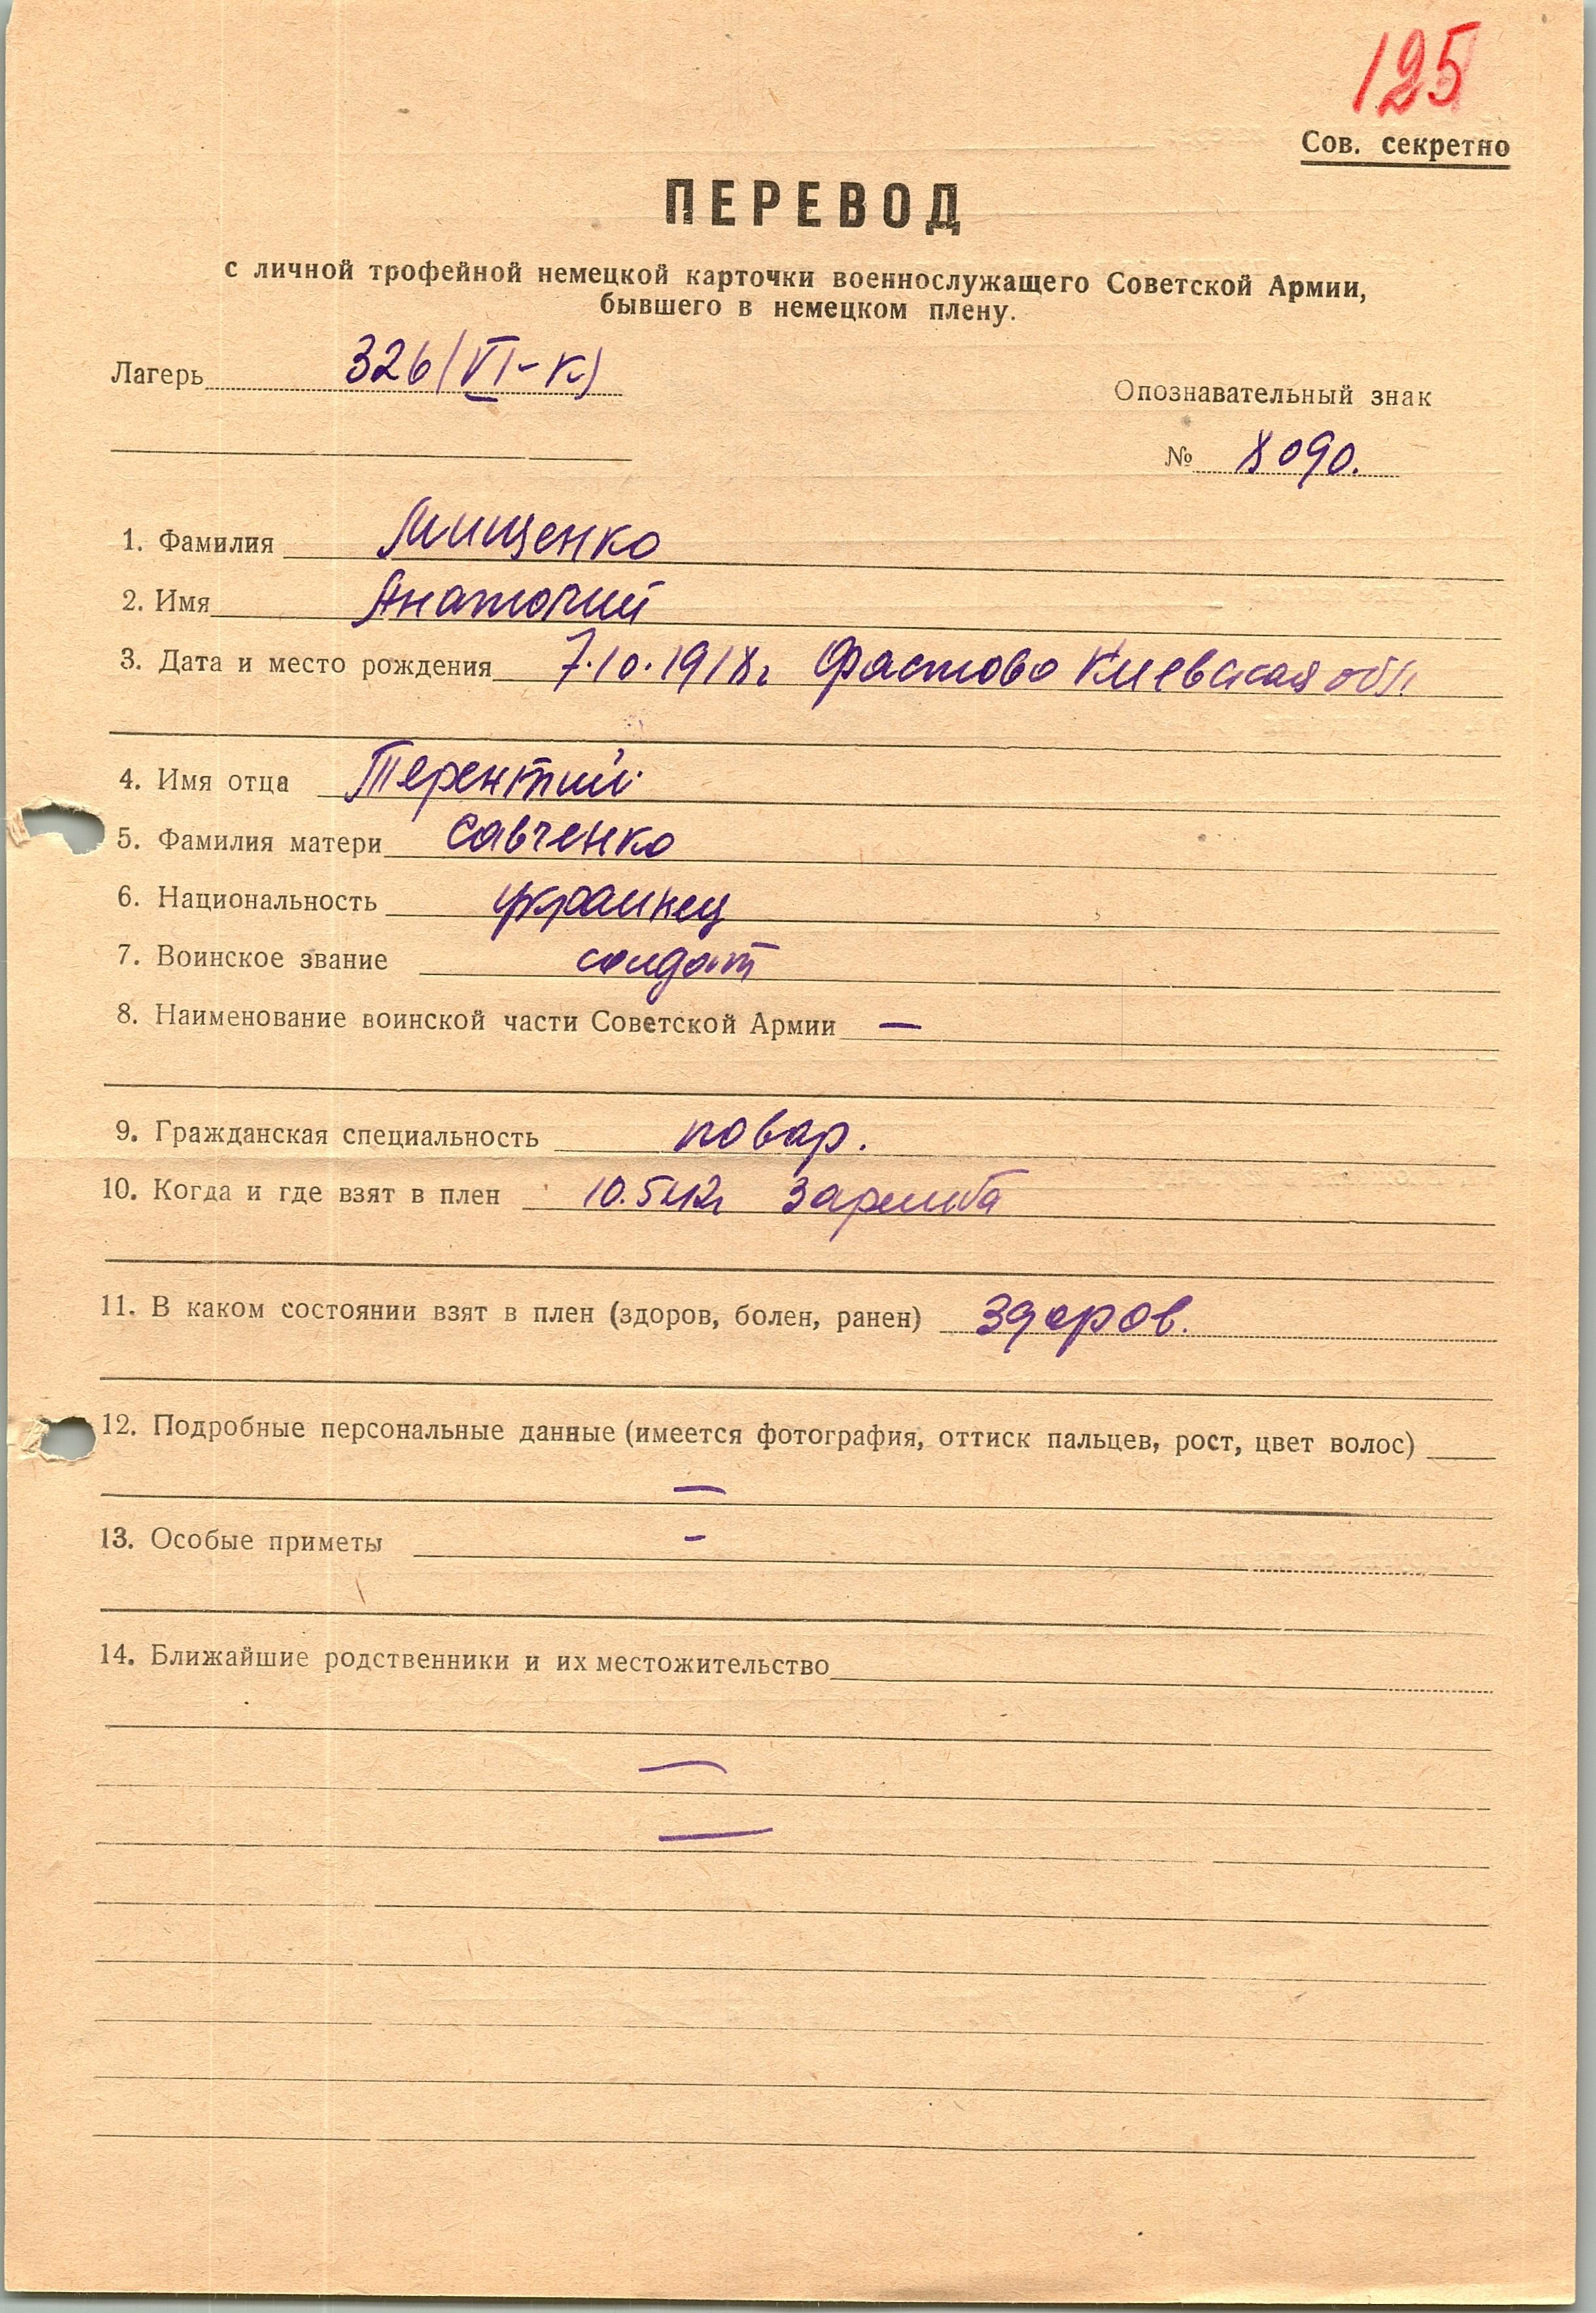 125
Сов. секретно
ПЕРЕВОД
с личной трофейной немецкой карточки военнослужащего Советской Армии,
бывшего в немецком плену.
Лагерь 326/VI-К)
Опознавательный знак
№ 8090.
1. Фамилия Мищенко
2. Имя Анатолий
3. Дата и место рождения 7.10.1918г Фастово Киевская обл.
4. Имя отца Терентий
5. Фамилия матери Савченко
6. Национальность украинец
7. Воинское звание солдат
8. Наименование воинской части Советской Армии —
9. Гражданская специальность повар.
10. Когда и где взят в плен 10.5.42г
11. В каком состоянии взят в плен (здоров, болен, ранен) здоров.
12. Подробные персональные данные (имеется фотография, оттиск пальцев, рост, цвет волос)
—
13. Особые приметы -
14. Ближайшие родственники и их местожительство
—
—